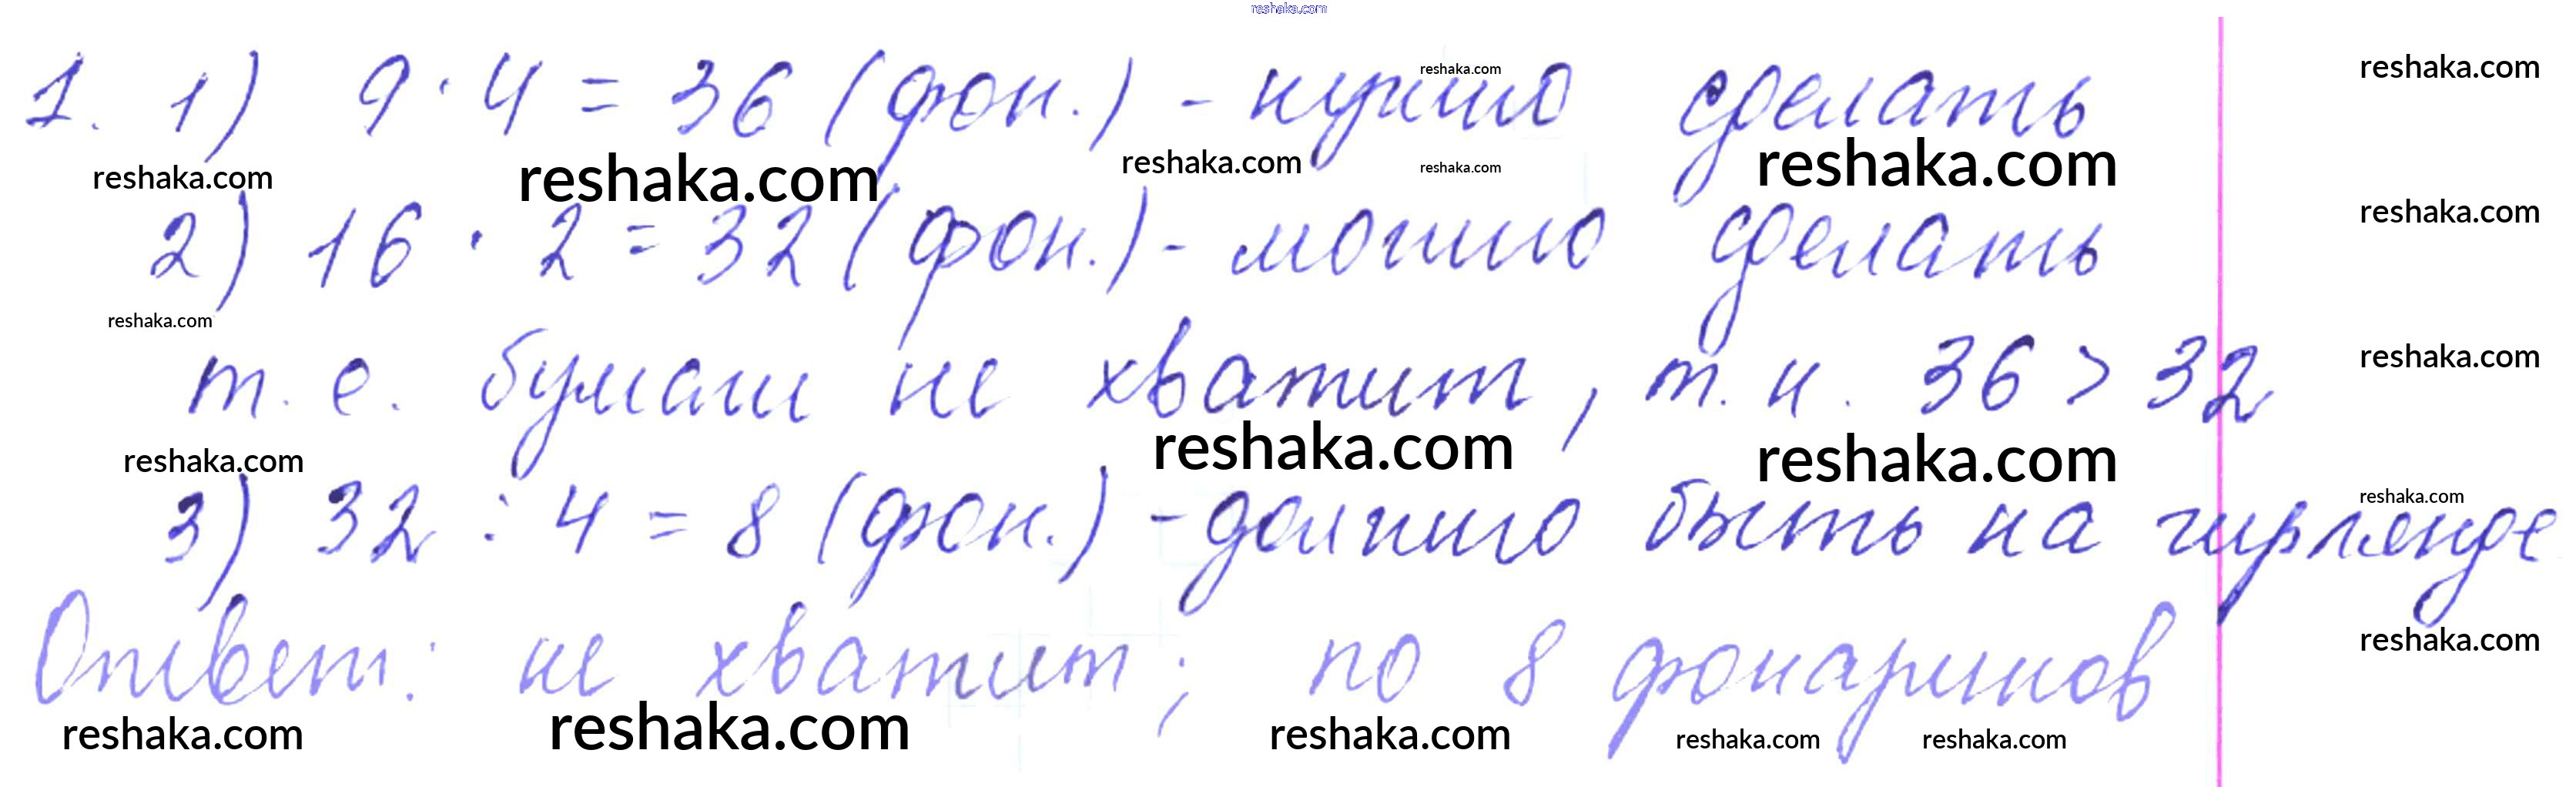 reshaka.com
1. 1) 9 · 4 = 36 (фон.) - нужно сделать
reshaka.com reshaka.com
reshaka.com reshaka.com reshaka.com reshaka.com reshaka.com
2) 16 · 2 = 32 (фон.) - можно сделать
reshaka.com
reshaka.com
т. е. бумаги не хватит, т. к. 36 > 32
reshaka.com
reshaka.com reshaka.com reshaka.com
3) 32 : 4 = 8 (фон.) - должно быть на гирлянде
reshaka.com
Ответ: не хватит; по 8 фонариков
reshaka.com
reshaka.com reshaka.com reshaka.com reshaka.com reshaka.com